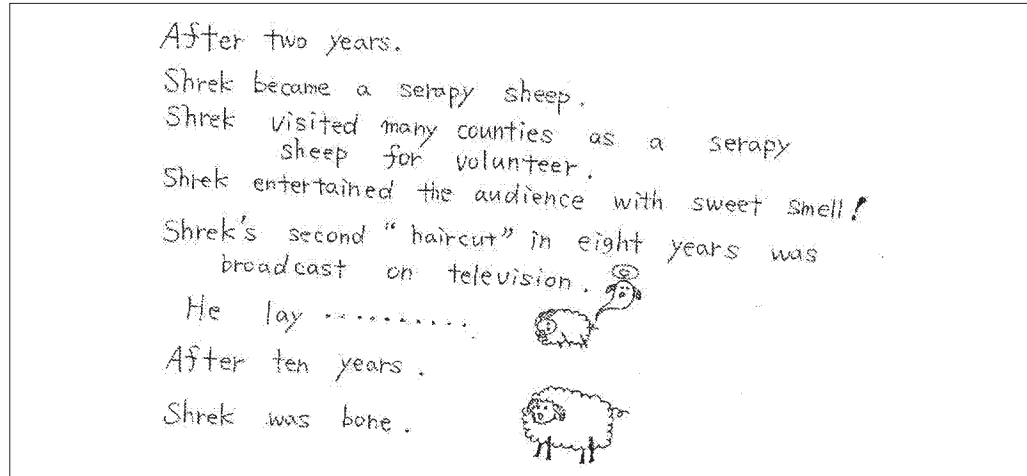 After two years.
Shrek became a serapy sheep.
Shrek visited many counties as a serapy
sheep for volunteer.
Shrek entertained the audience with sweet smell!
Shrek's second "haircut" in eight years was
broadcast on television.
He lay ..........
After ten years.
Shrek was bone.